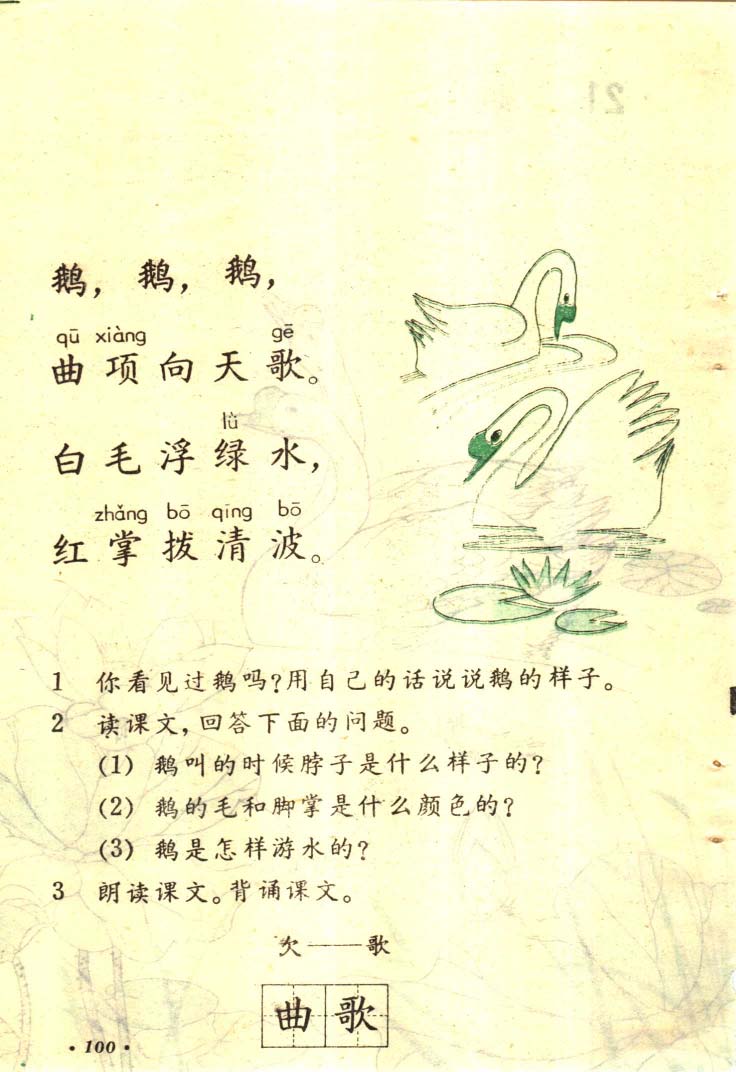 21
鹅，鹅，鹅，
qū xiàng gē
曲项向天歌。
lǜ
白毛浮绿水，
zhǎng bō qīng bō
红掌拨清波。
1 你看见过鹅吗？用自己的话说说鹅的样子。
2 读课文，回答下面的问题。
(1) 鹅叫的时候脖子是什么样子的？
(2) 鹅的毛和脚掌是什么颜色的？
(3) 鹅是怎样游水的？
3 朗读课文。背诵课文。
欠——歌
曲歌
·100·